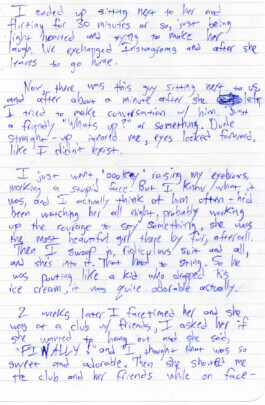 I ended up sitting next to her and
flirting for 30 minutes or so, just being
light hearted and trying to make her
laugh. We exchanged Instagrams and after she
leaves to go home.
Now, there was this guy sitting next to us,
and after about a minute after she left,
I tried to make conversation w/ him, just
a friendly "Whats up?" or something. Dude
straight-up ignored me, eyes locked forward,
like I didn't exist.
I just went, "ookay" raising my eyebrows,
making a stupid face. But I knew what it
was, and I actually think of him often - he'd
been watching her all night, probably working
up the courage to say something, she was
the most beautiful girl there by far, afterall.
Then I swoop in, ridiculous suit and all,
and she's into it. That had to sting. So he
was pouting like a kid who dropped his
ice cream, it was quite adorable actually.
2 weeks later I facetimed her and she
was at a club w/ friends, I asked her if
she wanted to hang out and she said,
"FINALLY!" and I thought that was so
sweet and adorable. Then she showed me
the club and her friends while on face-